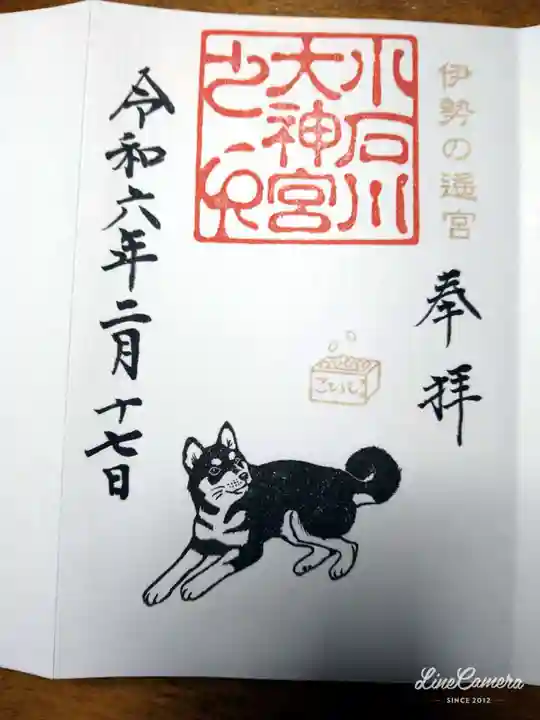 伊勢の遥宮
奉拝
小石川
大神宮
之印
ことひら
令和六年二月十七日
LineCamera
SINCE 2012